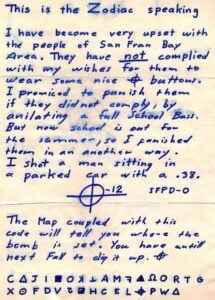 This is the Zodiac speaking
I have become very upset with
the people of San Fran Bay
Area. They have not complied
with my wishes for them to
wear some nice ⌖ buttons.
I promiced to punish them
if they did not comply, by
anilating a full School Buss.
But now school is out for
the sammer, so I punished
them in an another way.
I shot a man sitting in
a parked car with a .38.
⌖-12 SFPD-0
The Map coupled with this
code will tell you where the
bomb is set. You have antill
next Fall to dig it up. ⌖
C△JI■O AM ▲ΩORTG
X⊙FDV HCEL⌖PW△